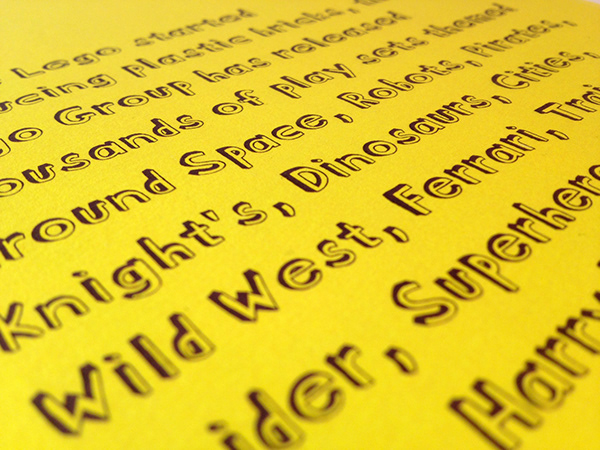 Lego started
ucing plastic bricks,
go Group has released
ousands of play sets themed
round Space, Robots, Pirates,
Knight's, Dinosaurs, Cities,
Wild West, Ferrari, Trai
ider, Superhero
Harry